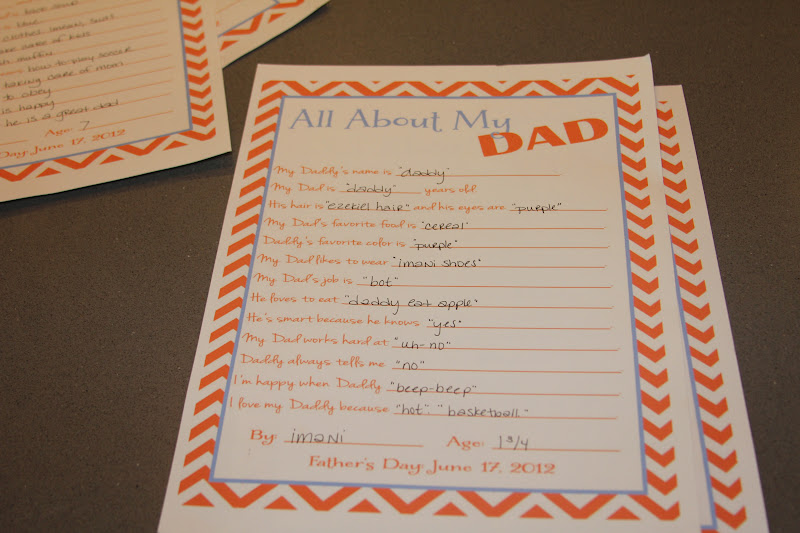 clothes, imani, suas
take care of kids
muffin
how to play soccer
taking care of mom
to obey
is happy
he is a great dad
Age: 7
Day: June 17, 2012
All About My
DAD
My Daddy's name is "daddy"
My Dad is "daddy" years old
His hair is "ezekiel hair" and his eyes are "purple"
My Dad's favorite food is "cereal"
Daddy's favorite color is "purple"
My Dad likes to wear "imani shoes"
My Dad's job is "bot"
He loves to eat "daddy eat apple"
He's smart because he knows "yes"
My Dad works hard at "uh-no"
Daddy always tells me "no"
I'm happy when Daddy "beep-beep"
I love my Daddy because "hot". "basketball"
By: imani Age: 1 3/4
Father's Day: June 17, 2012